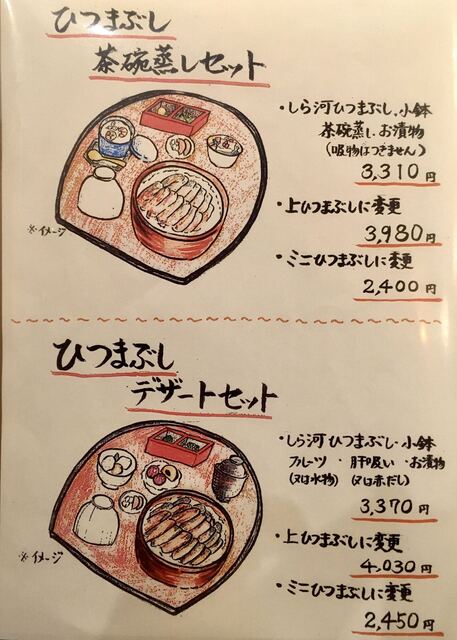 ひつまぶし
茶碗蒸しセット
・しら河ひつまぶし、小鉢
茶碗蒸し、お漬物
(吸物はつきません)
3,310円
・上ひつまぶしに変更
3,980円
・ミニひつまぶしに変更
2,400円
※イメージ
ひつまぶし
デザートセット
・しら河ひつまぶし・小鉢
フルーツ・肝吸い・お漬物
(又は氷物) (又は赤だし)
3,370円
・上ひつまぶしに変更
4,030円
・ミニひつまぶしに変更
2,450円
※イメージ